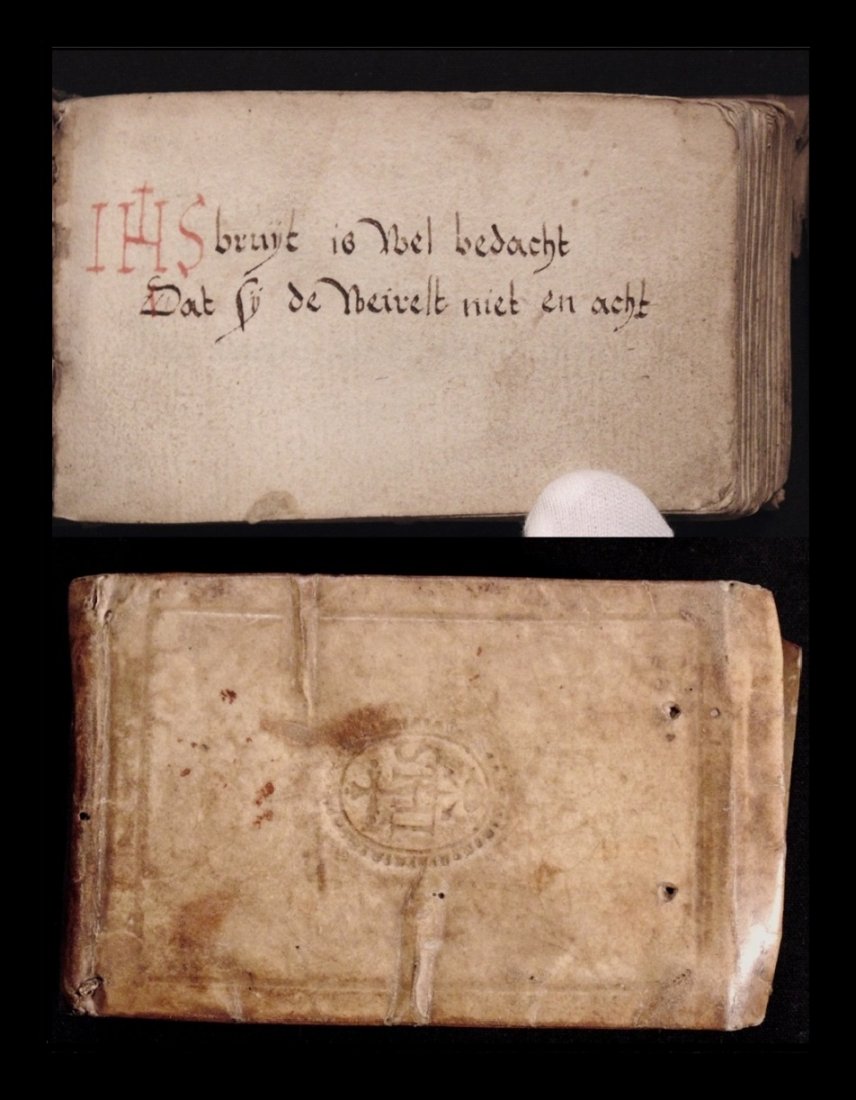 IHS bruÿt is Wel bedacht
Dat sÿ de Weirelt niet en acht
IHS